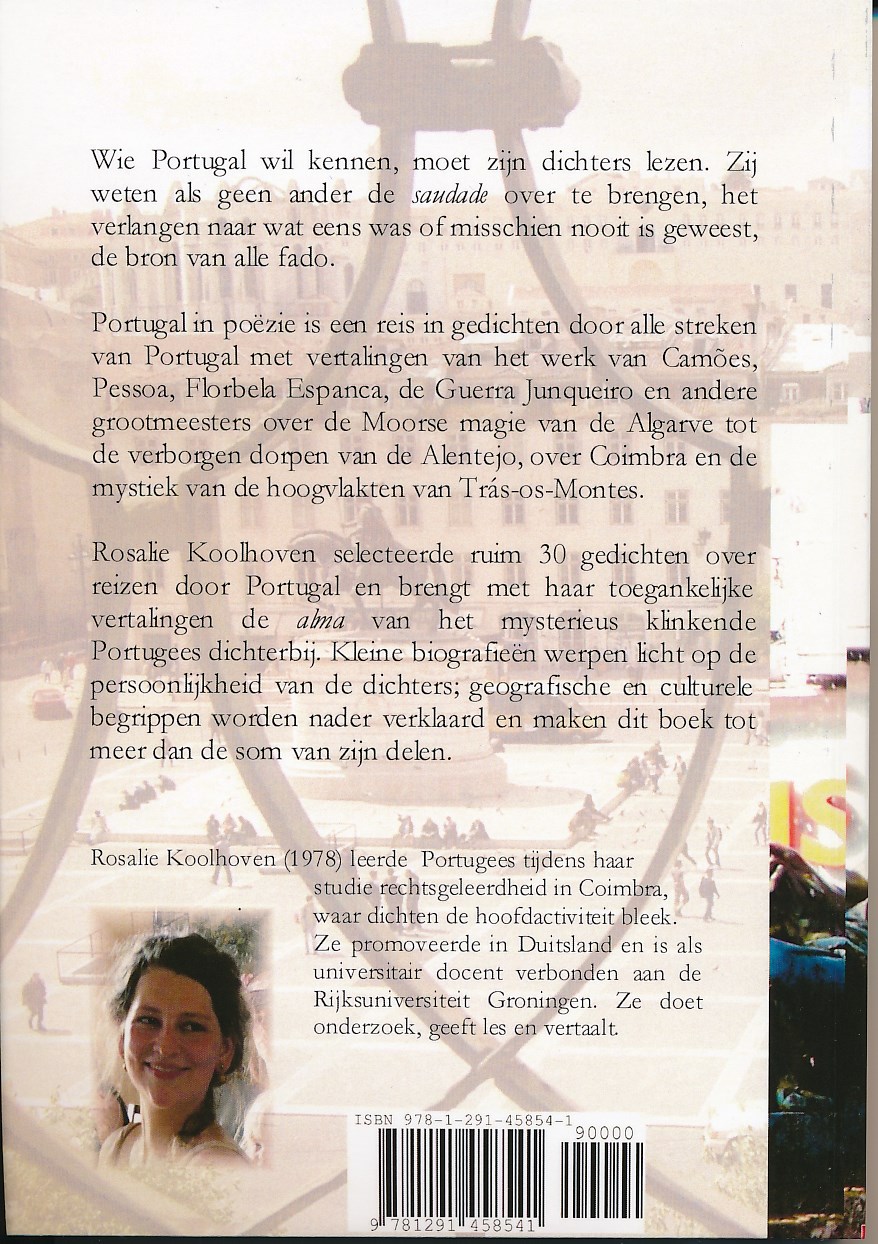 Wie Portugal wil kennen, moet zijn dichters lezen. Zij
weten als geen ander de saudade over te brengen, het
verlangen naar wat eens was of misschien nooit is geweest,
de bron van alle fado.
Portugal in poëzie is een reis in gedichten door alle streken
van Portugal met vertalingen van het werk van Camões,
Pessoa, Florbela Espanca, de Guerra Junqueiro en andere
grootmeesters over de Moorse magie van de Algarve tot
de verborgen dorpen van de Alentejo, over Coimbra en de
mystiek van de hoogvlakten van Trás-os-Montes.
Rosalie Koolhoven selecteerde ruim 30 gedichten over
reizen door Portugal en brengt met haar toegankelijke
vertalingen de alma van het mysterieus klinkende
Portugees dichterbij. Kleine biografieën werpen licht op de
persoonlijkheid van de dichters; geografische en culturele
begrippen worden nader verklaard en maken dit boek tot
meer dan de som van zijn delen.
Rosalie Koolhoven (1978) leerde Portugees tijdens haar
studie rechtsgeleerdheid in Coimbra,
waar dichten de hoofdactiviteit bleek.
Ze promoveerde in Duitsland en is als
universitair docent verbonden aan de
Rijksuniversiteit Groningen. Ze doet
onderzoek, geeft les en vertaalt.
ISBN 978-1-291-45854-1
90000
9 781291 458541
IS